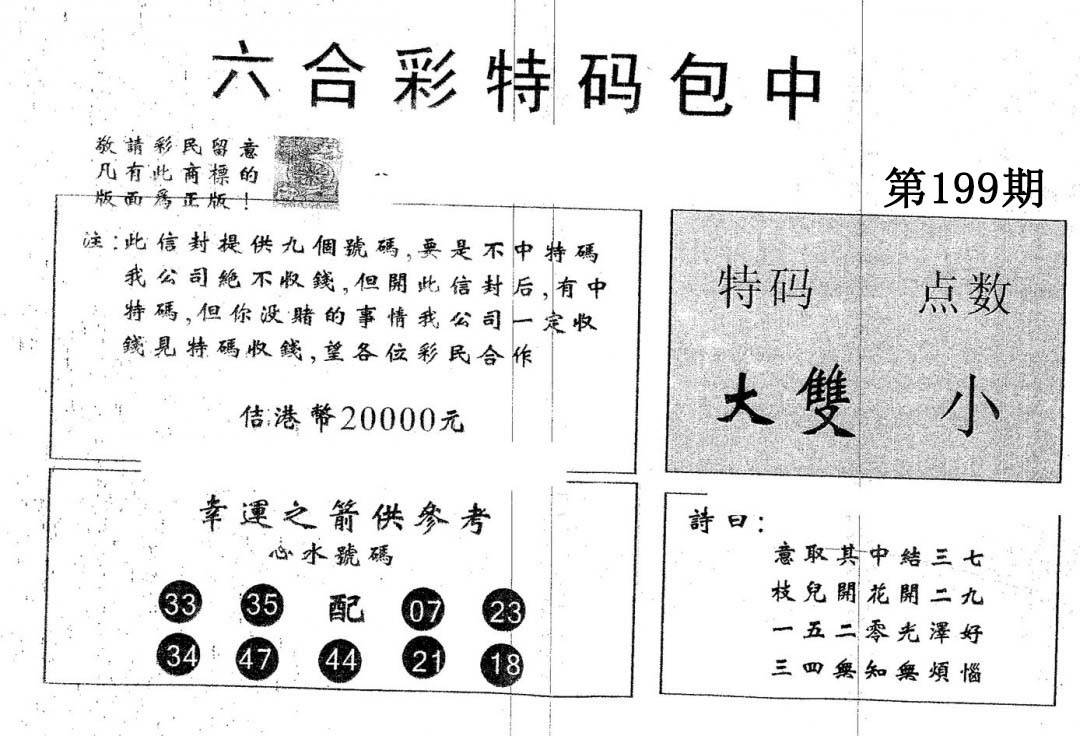 六合彩特码包中
敬請彩民留意
凡有此商標的
版面爲正版！
第199期
注:此信封提供九個號碼,要是不中特碼
我公司絶不收錢,但開此信封后,有中
特碼,但你没賭的事情我公司一定收
錢見特碼收錢,望各位彩民合作
佶港幣20000元
特码 点数
大雙 小
幸運之箭供參考
心水號碼
33 35 配 07 23
34 47 44 21 18
詩曰:
意取其中結三七
枝兒開花開二九
一五二零光澤好
三四無知無煩惱